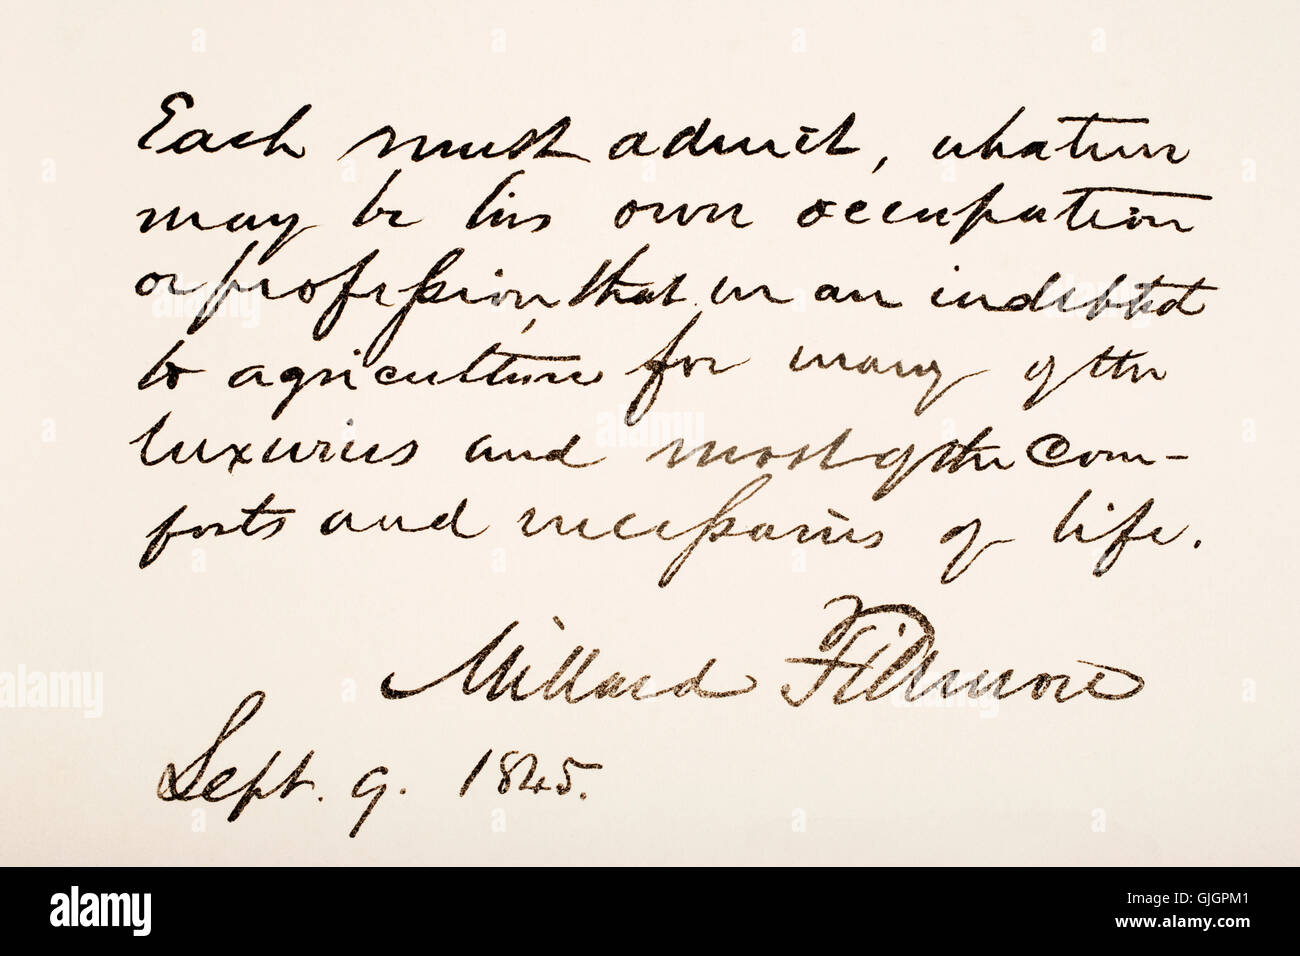 Each must admit, whatever
may be his own occupation
or profession, that we are indebted
to agriculture for many of the
luxuries and most of the com-
forts and necessaries of life.
Millard Fillmore
Sept. 9. 1845.
alamy
a
alamy stock photo
GJGPM1
www.alamy.com